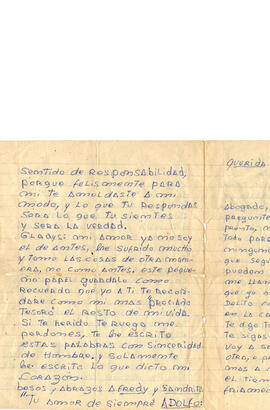 Sentido de Responsabilidad,
porque felismente para
mi te amoldaste a mi
modo, y lo que tu respondas
sera lo que tu sientes
y sera la verdad.
Gladys: mi amor ya no soy
el de antes, he sufrido mucho
y tomo las cosas de otra man-
era, no como antes, este peque-
ño papel guardalo como
recuerdo que yo a ti te recor-
dare como mi mas preciado
tesoro el resto de mi vida.
Si te herido te ruego me
perdones, te he escrito
estas palabras con sinceridad
de hombre, y solamente
he escrito lo que dicto mi
corazon.
besos y abrazos a Fredy y Sandrita
"Tu amor de siempre Adolfo:
Querida
Abogado,
pregunte
pronto, m
todo para
ningun
que segu
pueden
me llam
que yo
Delito c
en la ca
te digo t
te sigas
voy a se
otra, e p
amas a
el tiem
finaliz